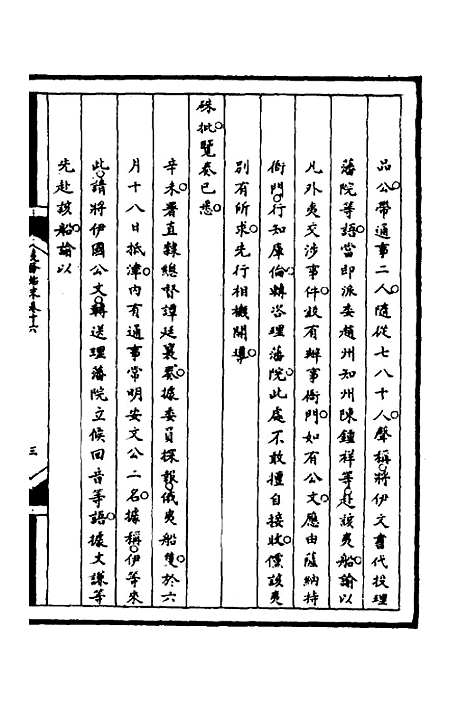 品公帶通事二人。隨從七八十人。聲稱。將伊文書代投理
藩院等語。當即派委趙州知州陳鍾祥等。赴該夷船。諭以
凡外夷交涉事件。設有辦事衙門。如有公文。應由薩納特
衙門。行知庫倫。轉咨理藩院。此處不敢擅自接收。儻該夷
別有所求。先行相機開導。
硃批。覽奏已悉。
辛未。署直隸總督譚廷襄奏。據委員探報。俄夷船隻。於六
月十八日抵津。內有通事常明安文公二名。據稱。伊等來
此。請將伊國公文。轉送理藩院。立候回音等語。據文謙等
先赴該船。諭以
夷務始末卷十六
三